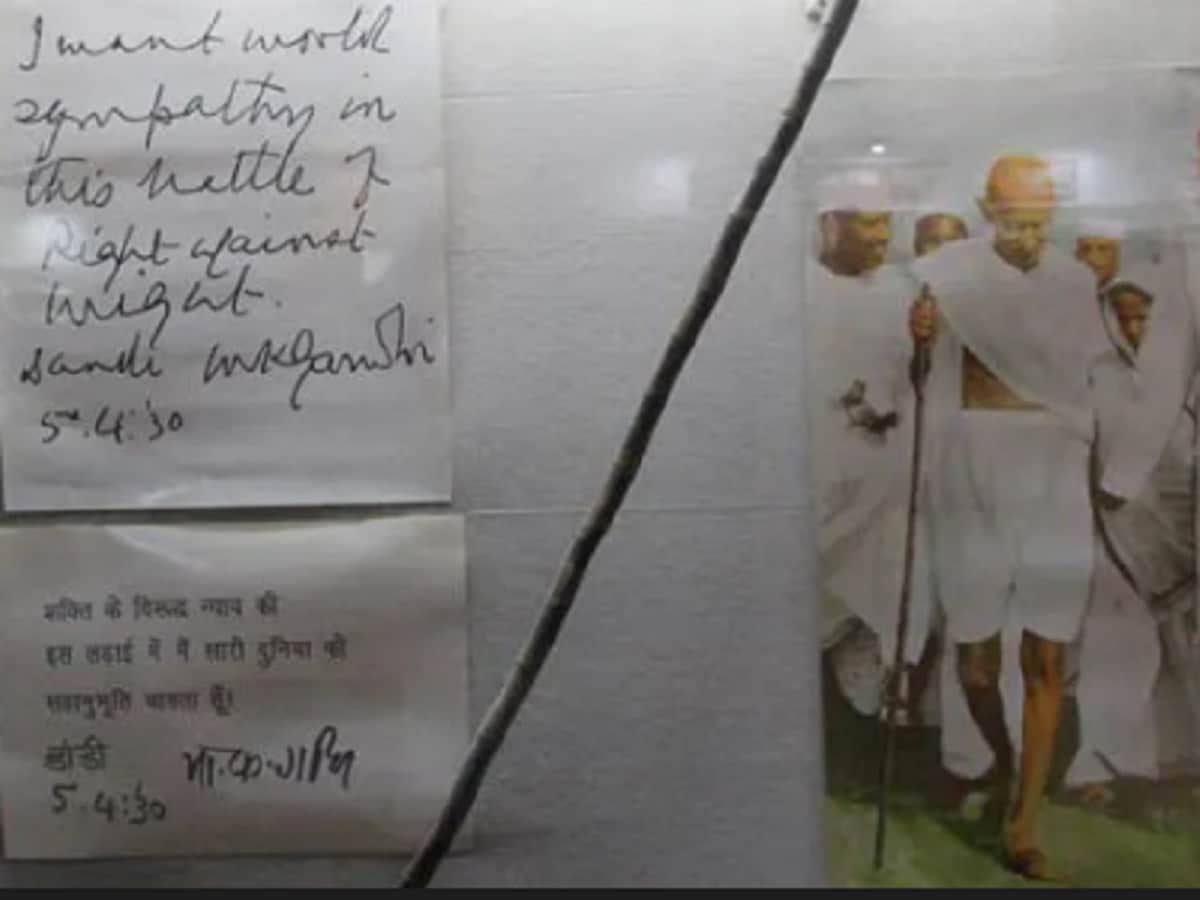 I want world
sympathy in
this battle of
Right against
might.
Dandi MKGandhi
5.4.'30
शक्ति के विरूद्ध न्याय की
इस लड़ाई में मैं सारी दुनिया की
सहानुभूति चाहता हूँ!
डांडी मो.क.गांधी
5.4.'30